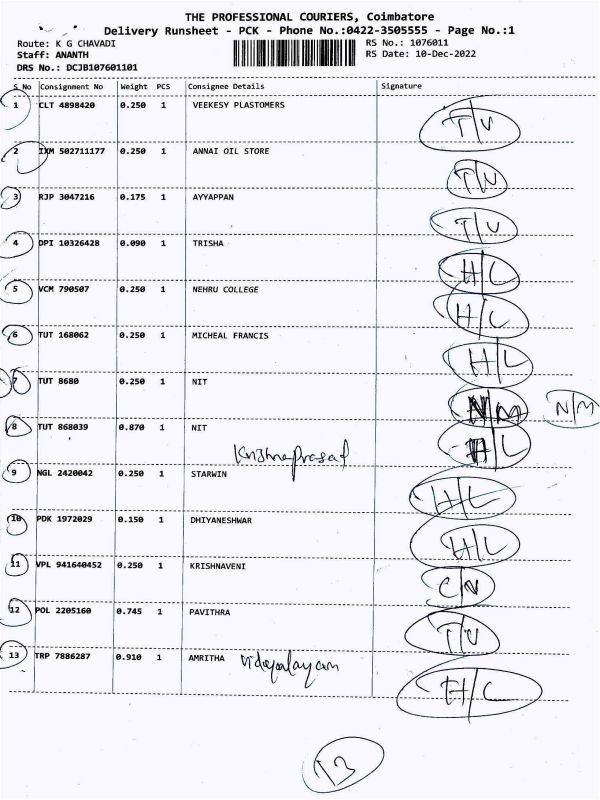 THE PROFESSIONAL COURIERS, Coimbatore
Delivery Runsheet - PCK - Phone No.:0422-3505555 - Page No.:1
Route: K G CHAVADI RS No.: 1076011
Staff: ANANTH RS Date: 10-Dec-2022
DRS No.: DCJB107601101
S No Consignment No Weight PCS Consignee Details Signature
1 CLT 4898420 0.250 1 VEEKESY PLASTOMERS T/V
2 IXM 502711177 0.250 1 ANNAI OIL STORE T/V
3 RJP 3047216 0.175 1 AYYAPPAN T/V
4 DPI 10326428 0.090 1 TRISHA H/L
5 VCM 790507 0.250 1 NEHRU COLLEGE H/L
6 TUT 168062 0.250 1 MICHEAL FRANCIS H/L
7 TUT 8680 0.250 1 NIT N/M N/M
8 TUT 868039 0.870 1 NIT H/L
Krishnaprasad
9 NGL 2420042 0.250 1 STARWIN H/L
10 PDK 1972029 0.150 1 DHIYANESHWAR H/L
11 VPL 941640452 0.250 1 KRISHNAVENI C/N
12 POL 2205160 0.745 1 PAVITHRA T/V
13 TRP 7886287 0.910 1 AMRITHA H/L
13